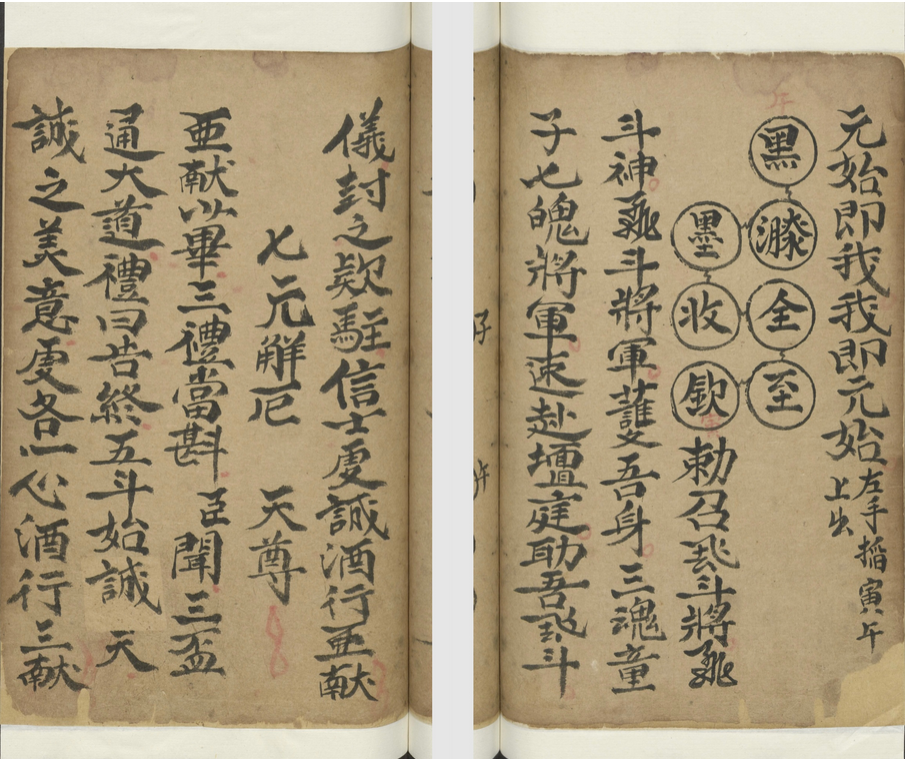 元始即我我即元始
左手搯寅八午
上出
黑
全至
墨收欽勅召飛斗將飛
斗神飛斗將軍護吾身三魂童
子七魄將軍速赴壇庭助吾飛斗
午
儀封之欵駐信士虔誠酒行亜献
七元解厄 天尊
亜献以畢三禮當斟 臣聞三盃
通大道禮曰告終五斗始誠 天
誠之美意虔各一心酒行三献